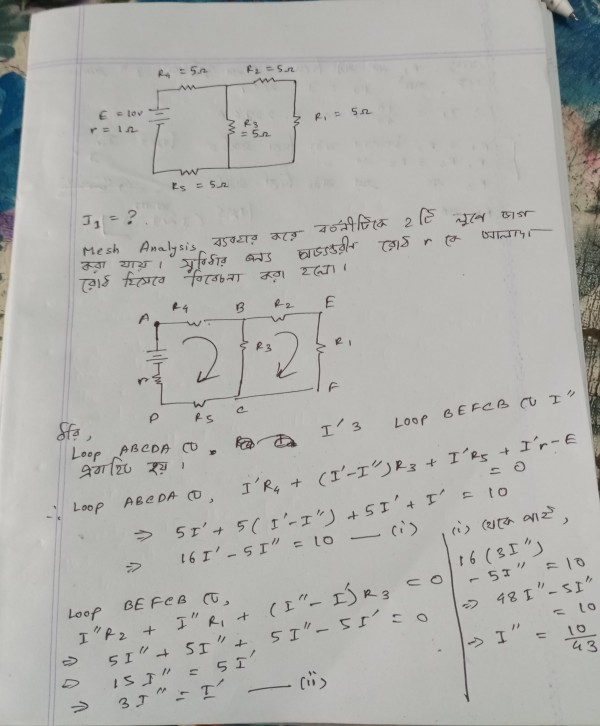 R4 = 5Ω
R2 = 5Ω
E = 10v
r = 1Ω
R3
= 5Ω
R1 = 5Ω
R5 = 5Ω
I1 = ?
Mesh Analysis ব্যবহার করে বর্তনীটিকে 2 টি লুপে ভাগ
করা যায়। সুবিধার জন্য অভ্যন্তরীণ রোধ r কে আলাদা
রোধ হিসেবে বিবেচনা করা হলো।
A
R4
B
R2
E
r
R3
R1
D
R5
C
F
ধরি,
Loop ABCDA তে I' ও Loop BEFCB তে I''
প্রবাহিত হয়।
∴ Loop ABCDA তে, I'R4 + (I'-I'')R3 + I'R5 + I'r - E
= 0
⇒ 5I' + 5(I'-I'') + 5I' + I' = 10
⇒ 16I' - 5I'' = 10 — (i)
Loop BEFCB তে,
I''R2 + I''R1 + (I''-I')R3 = 0
⇒ 5I'' + 5I'' + 5I'' - 5I' = 0
⇒ 15I'' = 5I'
⇒ 3I'' = I' — (ii)
(i) থেকে পাই,
16(3I'')
- 5I'' = 10
⇒ 48I'' - 5I''
= 10
⇒ I'' = 10/43